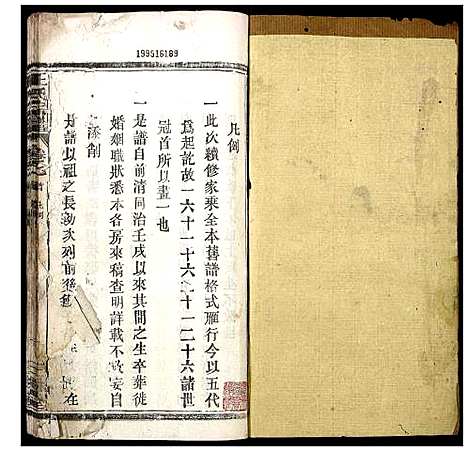 199516189
凡例
一此次續修家乘全本舊譜格式雁行今以五代
為起訖故一六十一十六廿一廿六諸世
冠首所以畫一也
一是譜自前清同治壬戌以來其間之生卒葬徙
婚姻職狀悉本各房來稿查明詳載不敢妄自
添創
一是譜以祖之長幼次列前後
在